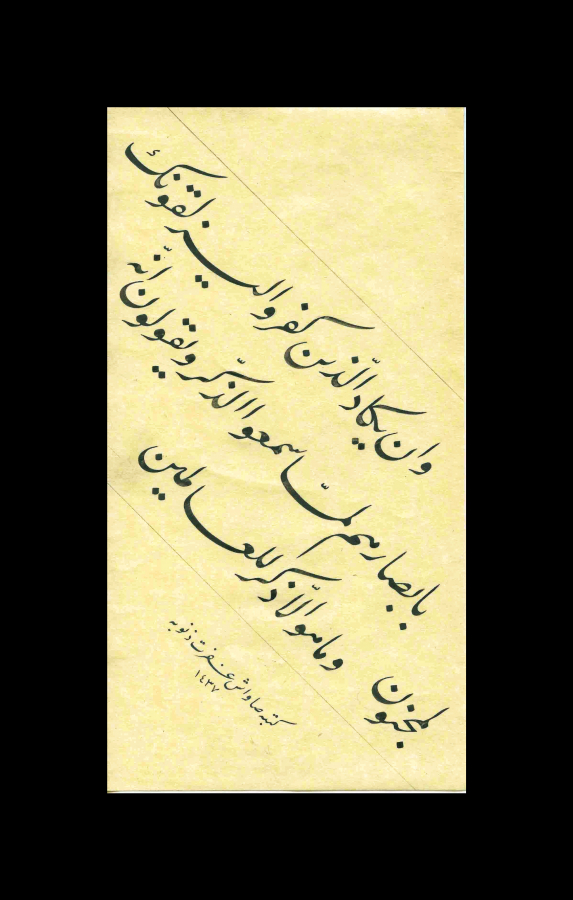 وان يكاد الّذين كفروا ليزلقونك
بابصارهم لمّا سمعوا الذّكر ويقولون انّه
لمجنون
وما هو الاّ ذكر للعالمين
كتبه صاواش غفرت ذنوبه
١٤٣٧